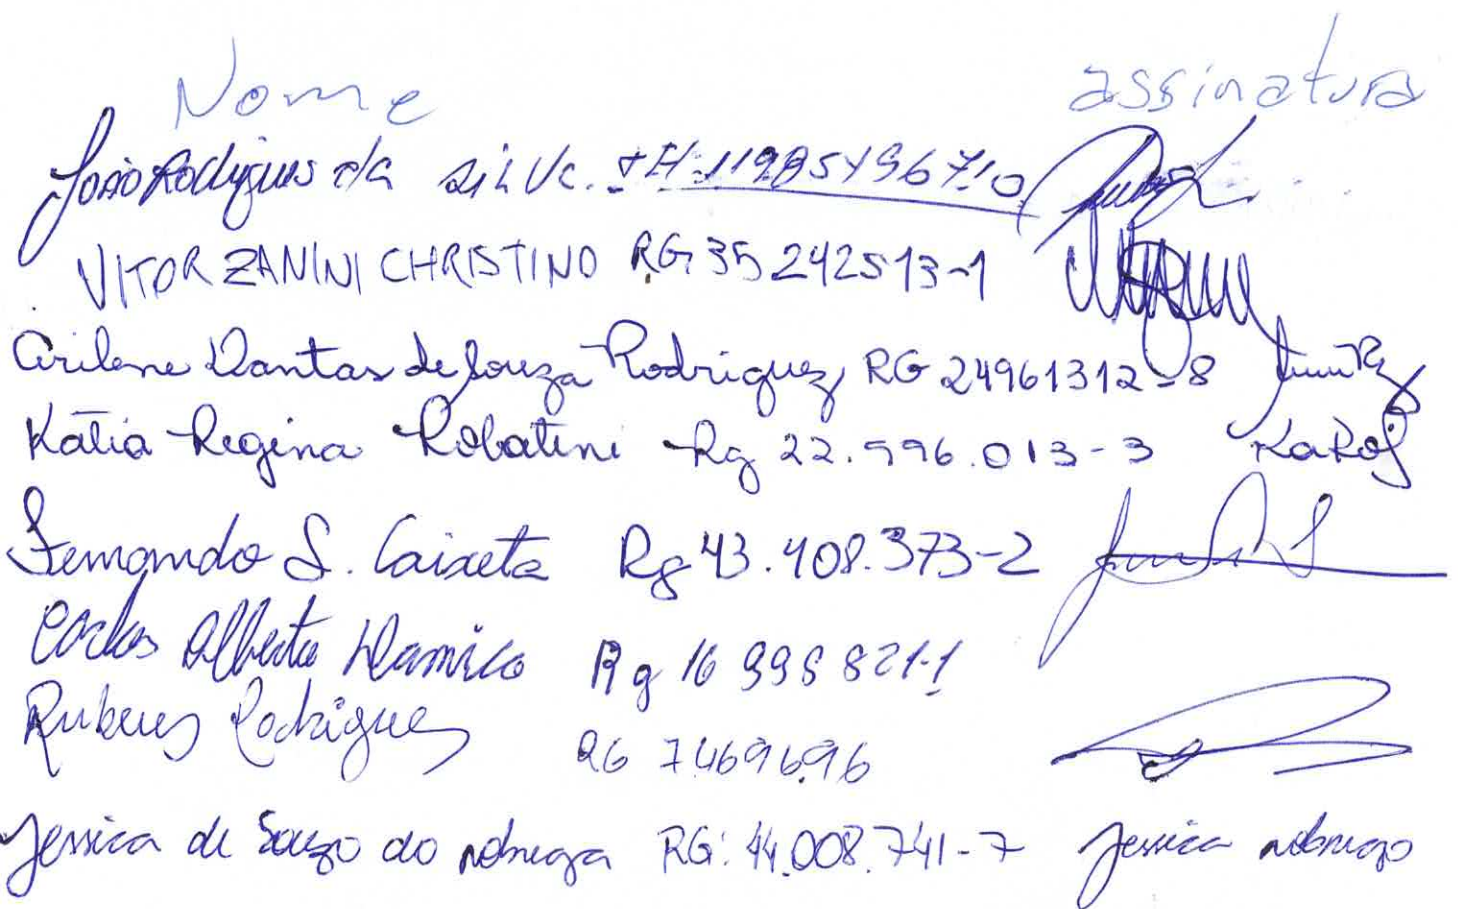 Nome assinatura
João Rodrigues da Silva. tel: 11985496710
VITOR ZANINI CHRISTINO RG 35 242513-1
Cirilene Dantas de Souza Rodrigues RG 24961312-8
Kátia Regina Robatini Rg 22.996.013-3 KaRof
Fernando S. Caixeta Rg 43.408.373-2
Carlos Alberto Damico Rg 16 998 821-1
Rubens Rodrigues 26 7469696
Jessica de Souza da nobrega RG: 44.008.741-7 Jessica nobrega